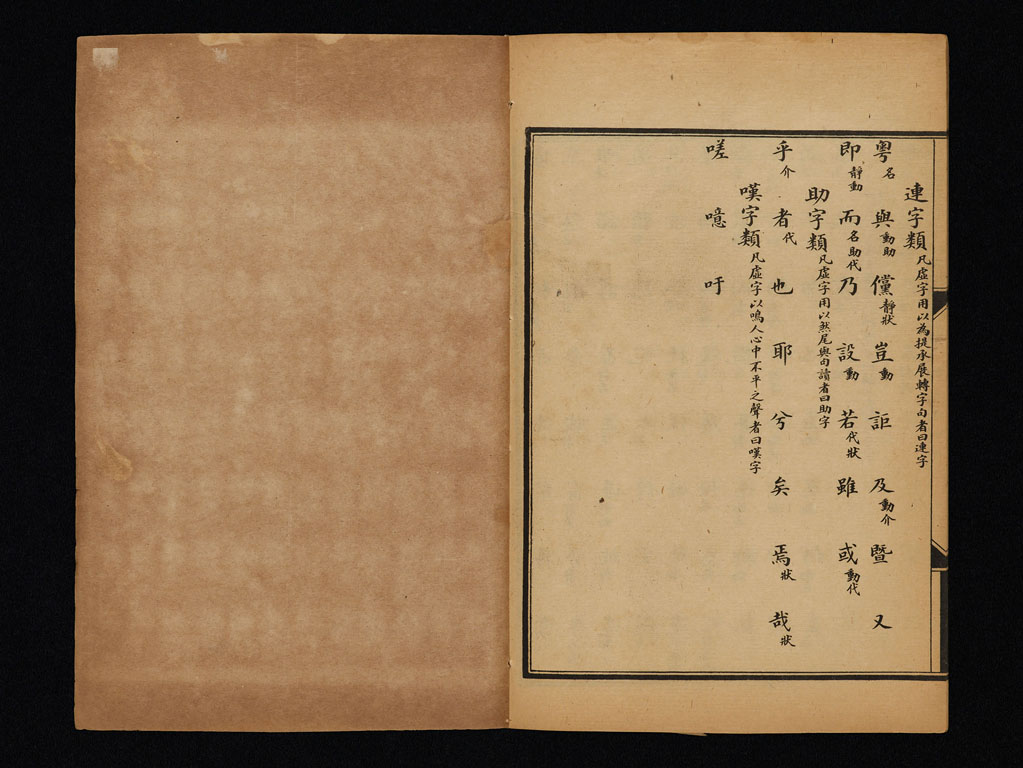 連字類凡虛字用以為提承展轉字句者曰連字
粵名 與動助 儻靜狀 豈動 詎 及動介 暨 又
即靜動 而名助代 乃 設動 若代狀 雖 或動代
助字類凡虛字用以煞尾與句讀者曰助字
乎介 者代 也 耶 兮 矣 焉狀 哉狀
嘆字類凡虛字以鳴人心中不平之聲者曰嘆字
嗟 噫 吁